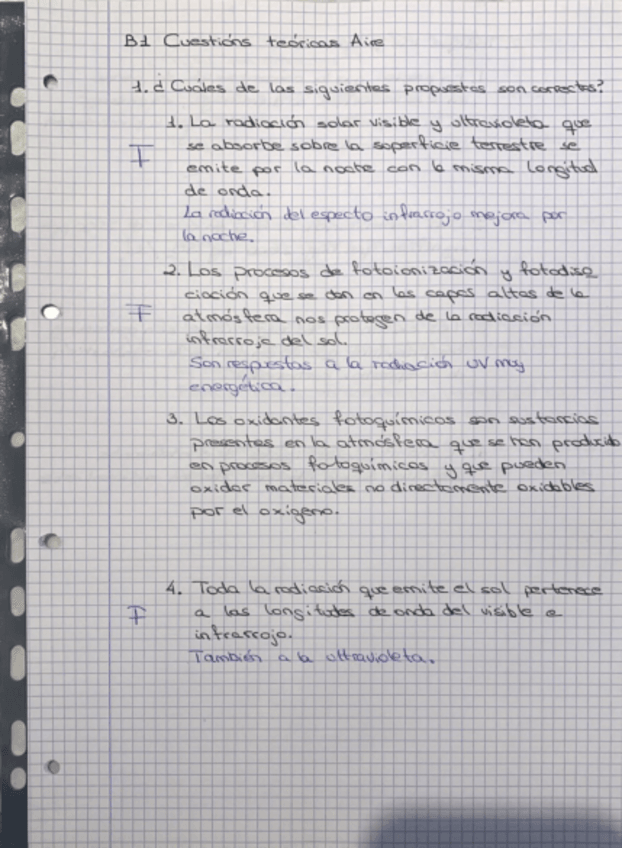 B1 Cuestións teóricas Aire
1. ¿Cuáles de las siguientes propuestas son correctas?
1. La radiación solar visible y ultravioleta que
se absorbe sobre la superficie terrestre se
F
emite por la noche con la misma longitud
de onda.
La radiación del espectro infrarrojo mejora por
la noche.
2. Los procesos de fotoionización y fotodiso
ciación que se dan en las capas altas de la
F
atmósfera nos protegen de la radiación
infrarroja del sol.
Son respuestas a la radiación UV muy
energética.
3. Los oxidantes fotoquímicos son sustancias
presentes en la atmósfera que se han producido
en procesos fotoquímicos y que pueden
oxidar materiales no directamente oxidables
por el oxígeno.
4. Toda la radiación que emite el sol pertenece
F
a las longitudes de onda del visible e
infrarrojo.
También a la ultravioleta.